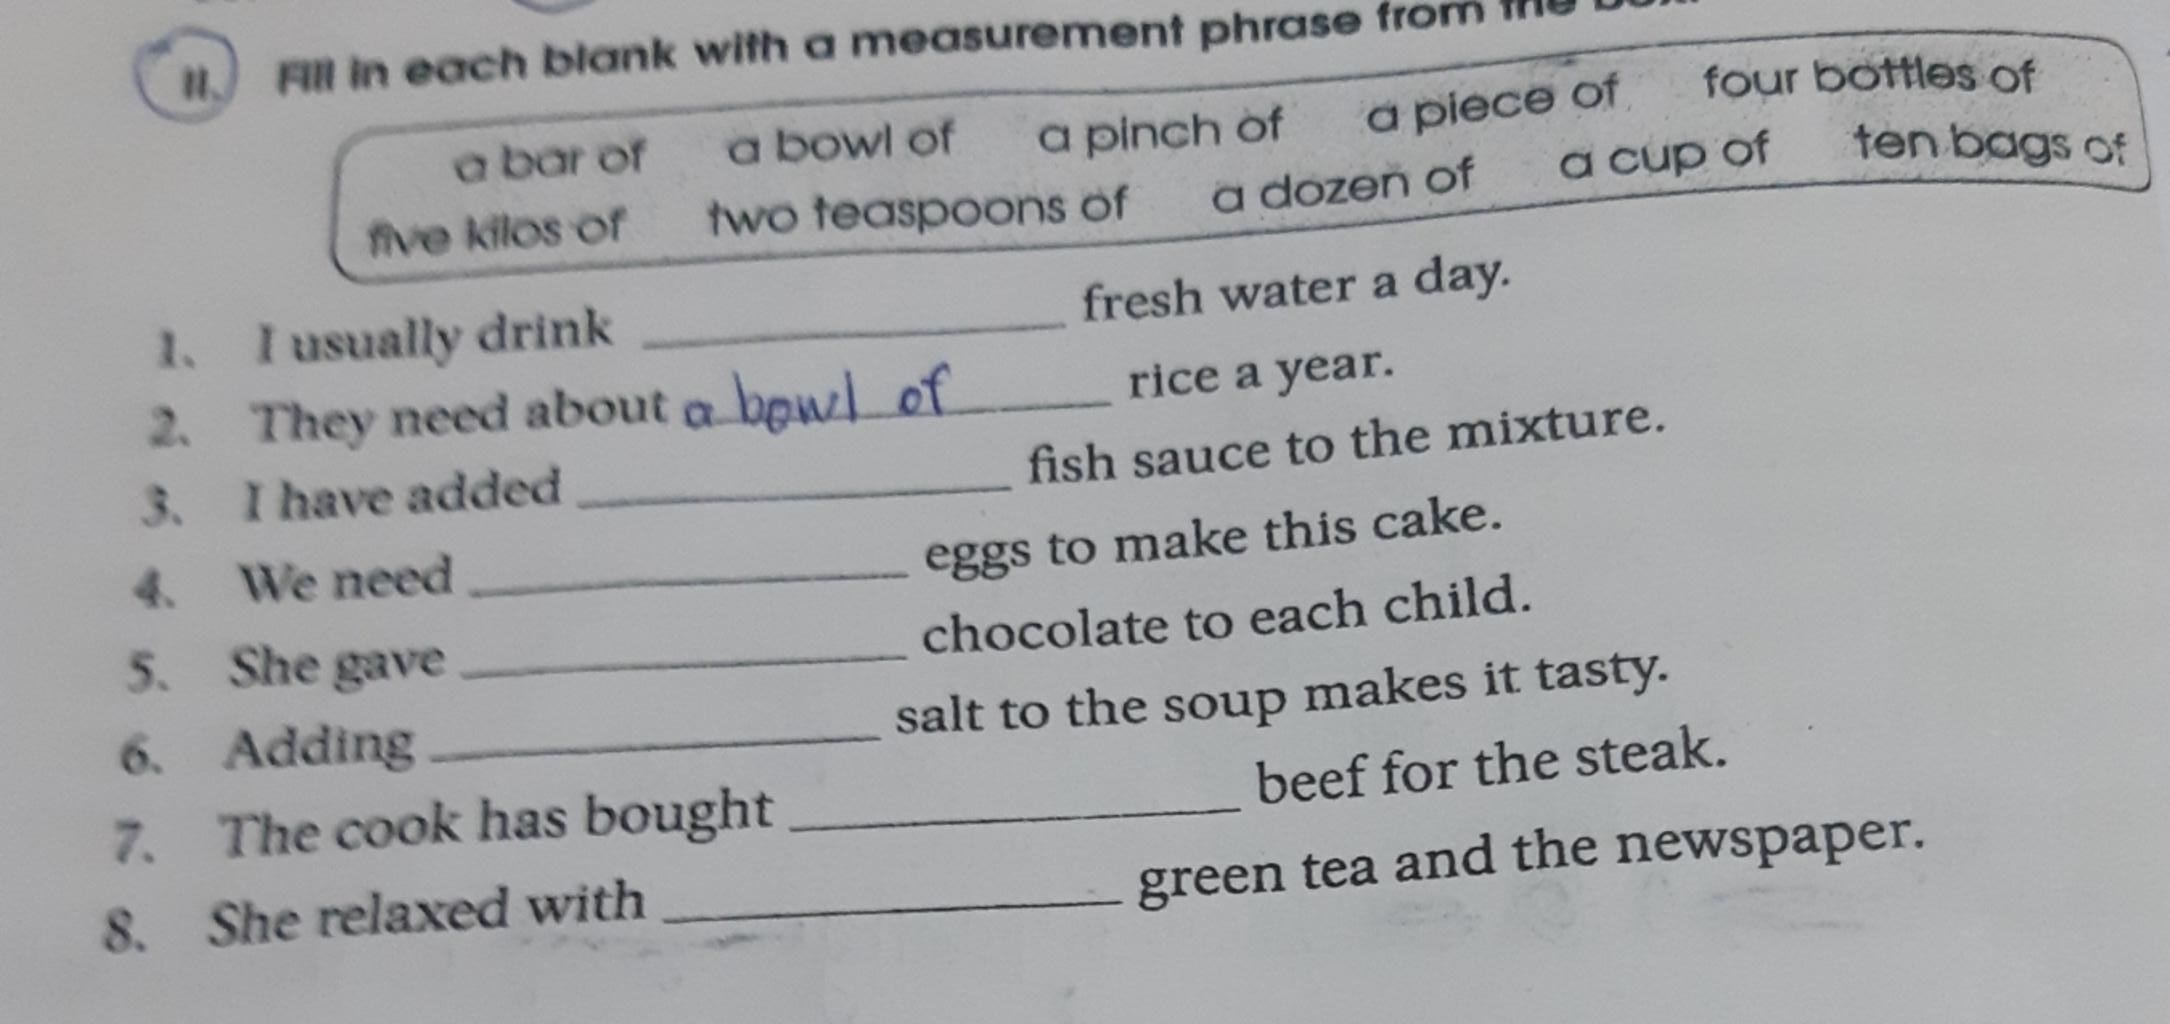 II. Fill in each blank with a measurement phrase from the box.
a bar of a bowl of a pinch of a piece of four bottles of
five kilos of two teaspoons of a dozen of a cup of ten bags of
1. I usually drink ____________ fresh water a day.
2. They need about a bowl of ____________ rice a year.
3. I have added ____________ fish sauce to the mixture.
4. We need ____________ eggs to make this cake.
5. She gave ____________ chocolate to each child.
6. Adding ____________ salt to the soup makes it tasty.
7. The cook has bought ____________ beef for the steak.
8. She relaxed with ____________ green tea and the newspaper.